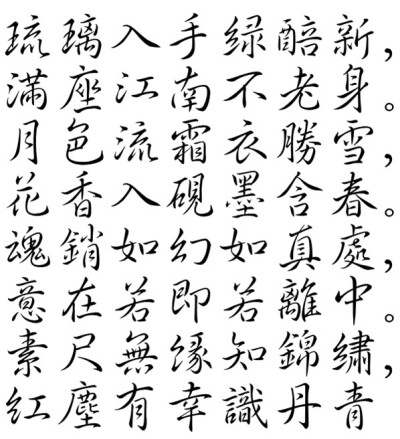 琉璃入手绿醅新，
滿座江南不老身。
月色流霜衣勝雪，
花香入硯墨含春。
魂銷如幻如真處，
意在若即若離中。
素尺無緣知錦繡，
紅塵有幸識丹青